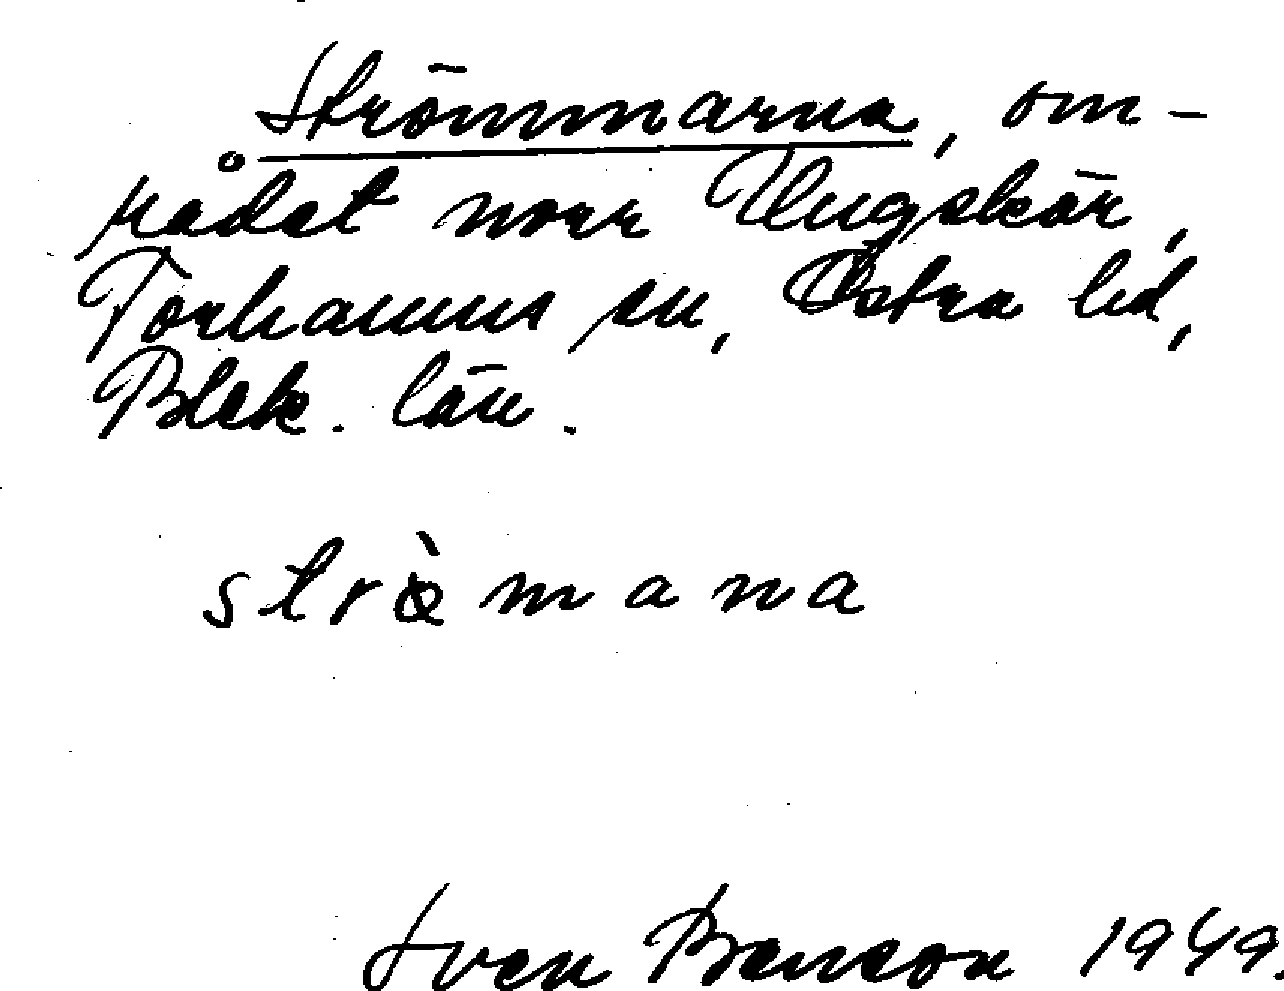 Strömmarna, om-
rådet norr Ungskär,
Torhamns sn, Östra hd,
Blek. län.
strö̀mana
Sven Benson 1949.